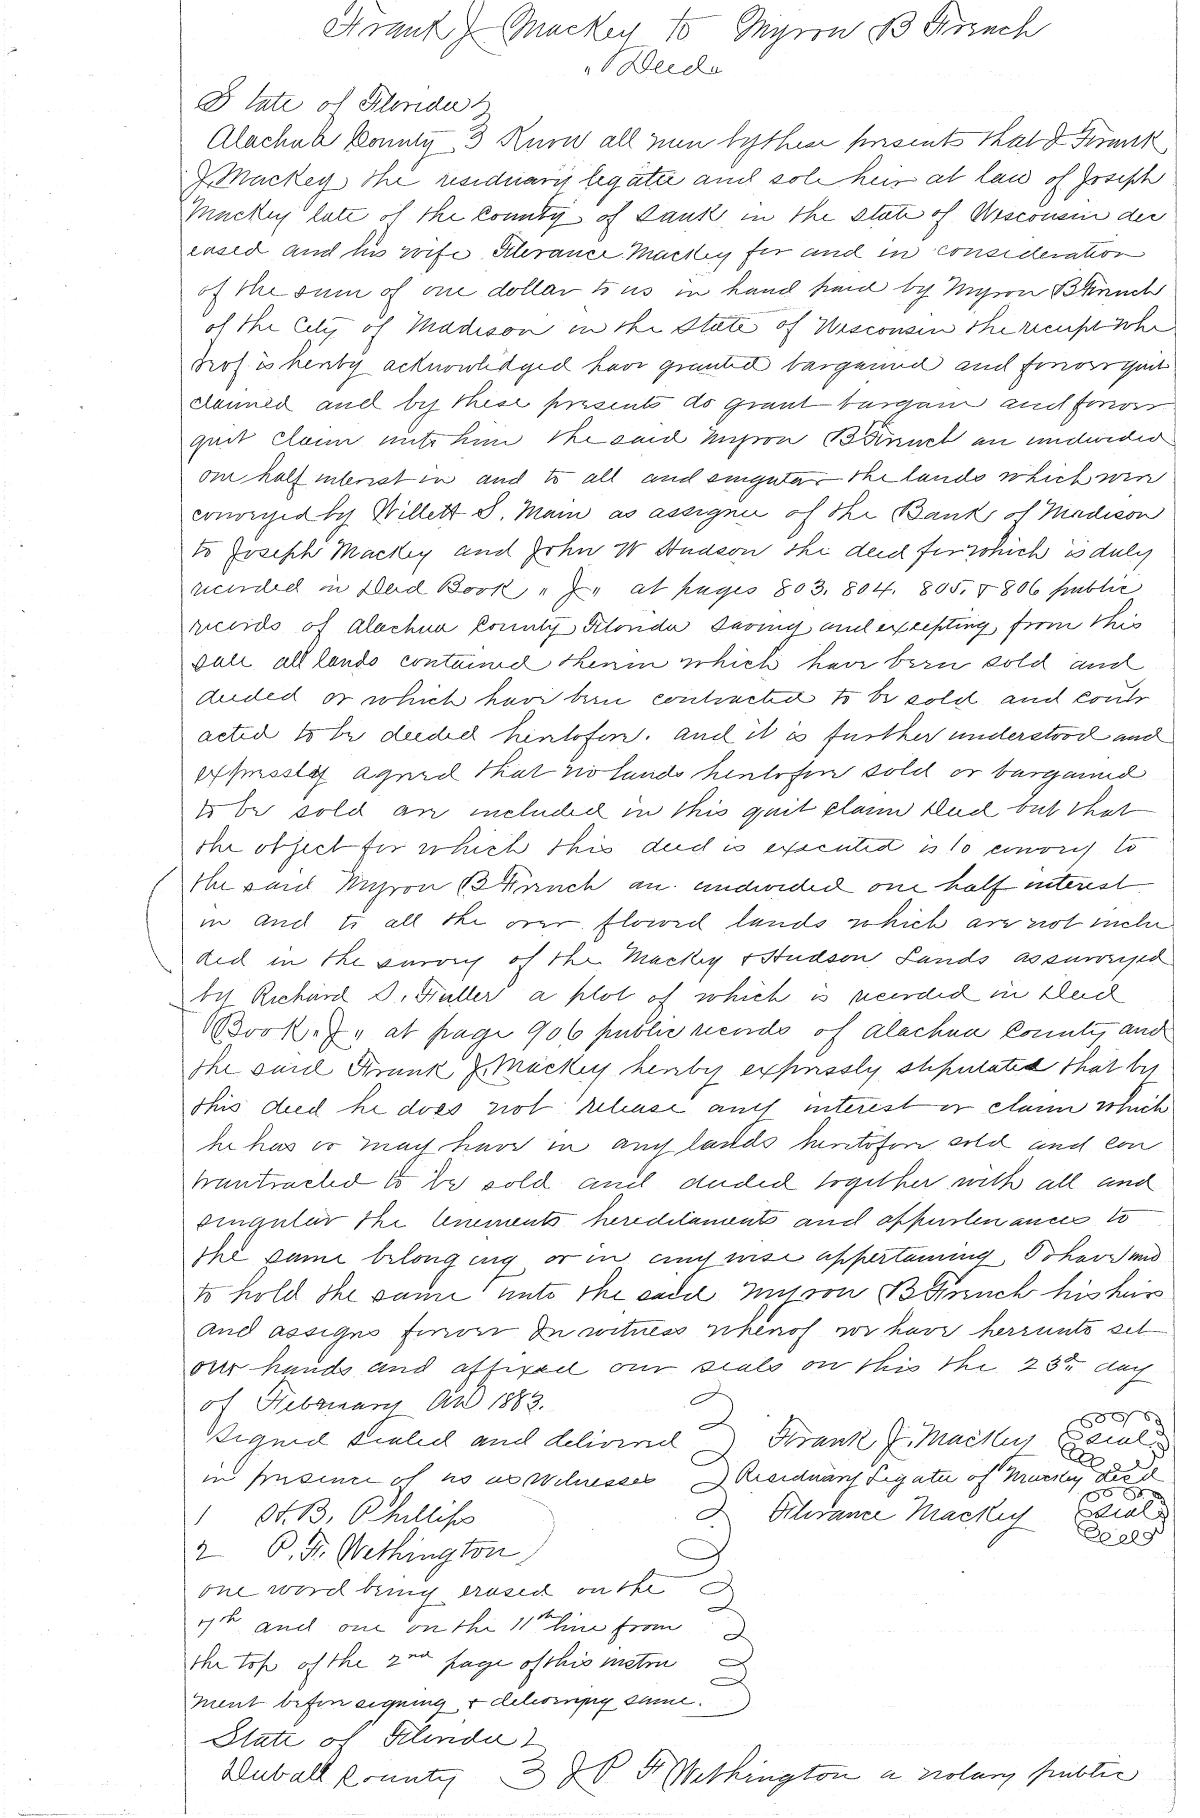 Frank J Mackey to Myron B French
"Deed"
State of Florida
Alachua County } Know all men by these presents that I Frank
J. Mackey the residuary legatee and sole heir at law of Joseph
Mackey late of the County of Sauk in the State of Wisconsin dec
eased and his wife Florance Mackey for and in consideration
of the sum of one dollar to us in hand paid by Myron B French
of the City of Madison in the State of Wisconsin the receipt whe
reof is hereby acknowledged have granted bargained and forever quit
claimed and by these presents do grant bargain and forever
quit claim unto him the said Myron B French an undivided
one half interest in and to all and singular the lands which were
conveyed by Willett S. Main as assignee of the Bank of Madison
to Joseph Mackey and John W Hudson the deed for which is duly
recorded in Deed Book "J" at pages 803. 804. 805. & 806 public
records of Alachua County Florida Saving and excepting from this
sale all lands contained therein which have been sold and
deeded or which have been contracted to be sold and contr
acted to be deeded heretofore. and it is further understood and
expressly agreed that no lands heretofore sold or bargained
to be sold are included in this quit claim Deed but that
the object for which this deed is executed is to convey to
the said Myron B French an undivided one half interest
in and to all the over flowed lands which are not inclu
ded in the survey of the Mackey & Hudson Lands as surveyed
by Richard S. Fuller a plot of which is recorded in Deed
Book "J" at page 906 public records of Alachua County and
the said Frank J. Mackey hereby expressly stipulates that by
this deed he does not release any interest or claim which
he has or may have in any lands heretofore sold and con
trantracted to be sold and deeded together with all and
singular the tenements hereditaments and appurtenances to
the same belonging or in any wise appertaining To have and
to hold the same unto the said Myron B French his heirs
and assigns forever In witness whereof we have hereunto set
our hands and affixed our seals on this the 23rd day
of February AD 1883.
Signed sealed and delivered } Frank J. Mackey Seal
in presence of us as Witnesses } Residuary Legatee of Mackey decd
1 H. B. Phillips } Florance Mackey Seal
2 P. F. Wethington
one word being erased on the
7th and one on the 11th line from
the top of the 2nd page of this instru
ment before signing & delivering same.
State of Florida
Duball County } I P F Wethington a notary public